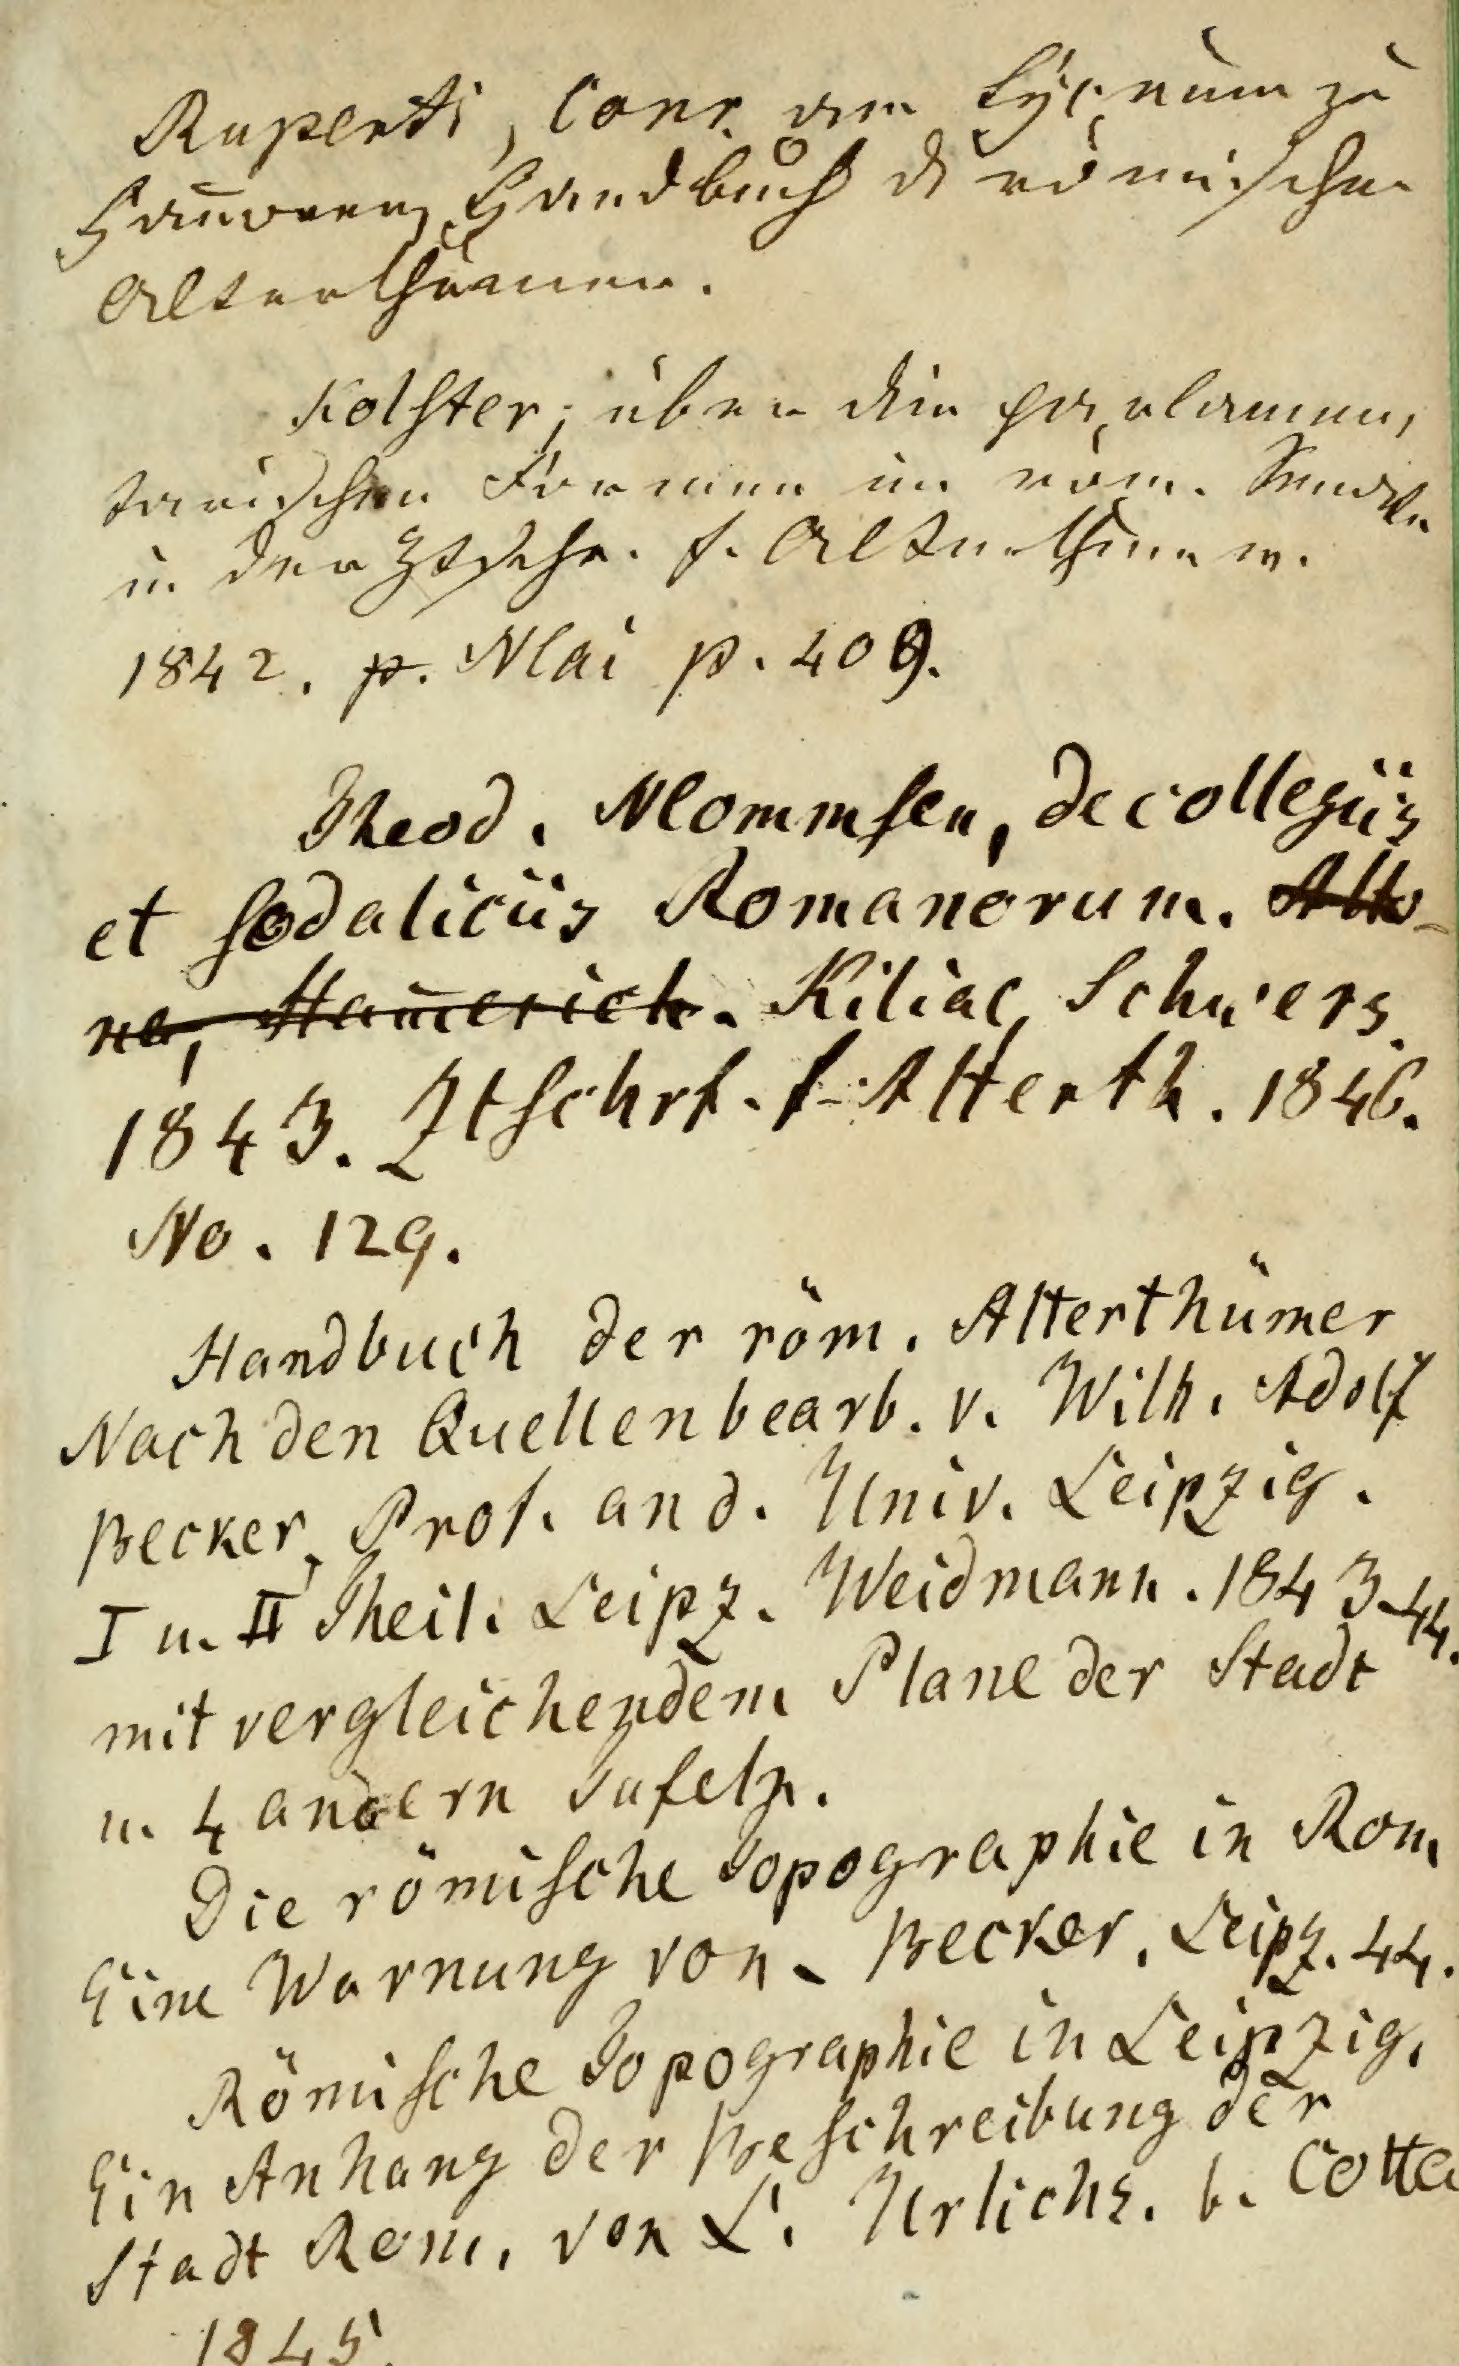 Ruperti, Conr. am Lyceum zu
Hannover, Handbuch d römischen
Alterthümer.
Kolster, über die parlamen,
tarischen Formen im röm. Senate
in der Ztschr. f. Alterthumsw.
1842. p. Mai p. 409.
Theod. Mommsen, de collegiis
et sodaliciis Romanorum. Alto-
na, Ham̅erich. Kiliae, Schwers.
1843. Ztschrf. f. Alterth. 1846.
No. 129.
Handbuch der röm. Alterthümer
Nach den Quellen bearb. v. Wilh. Adolf
Becker, Prof. an d. Univ. Leipzig.
I u. II Theil. Leipz. Weidmann. 1843-44.
mit vergleichendem Plane der Stadt
u. 4 andern Tafeln.
Die römische Topographie in Rom
Eine Warnung von Becker. Leipz. 44.
Römische Topographie in Leipzig.
Ein Anhang der Beschreibung der
Stadt Rom. von L. Urlichs. b. Cotta
1845.